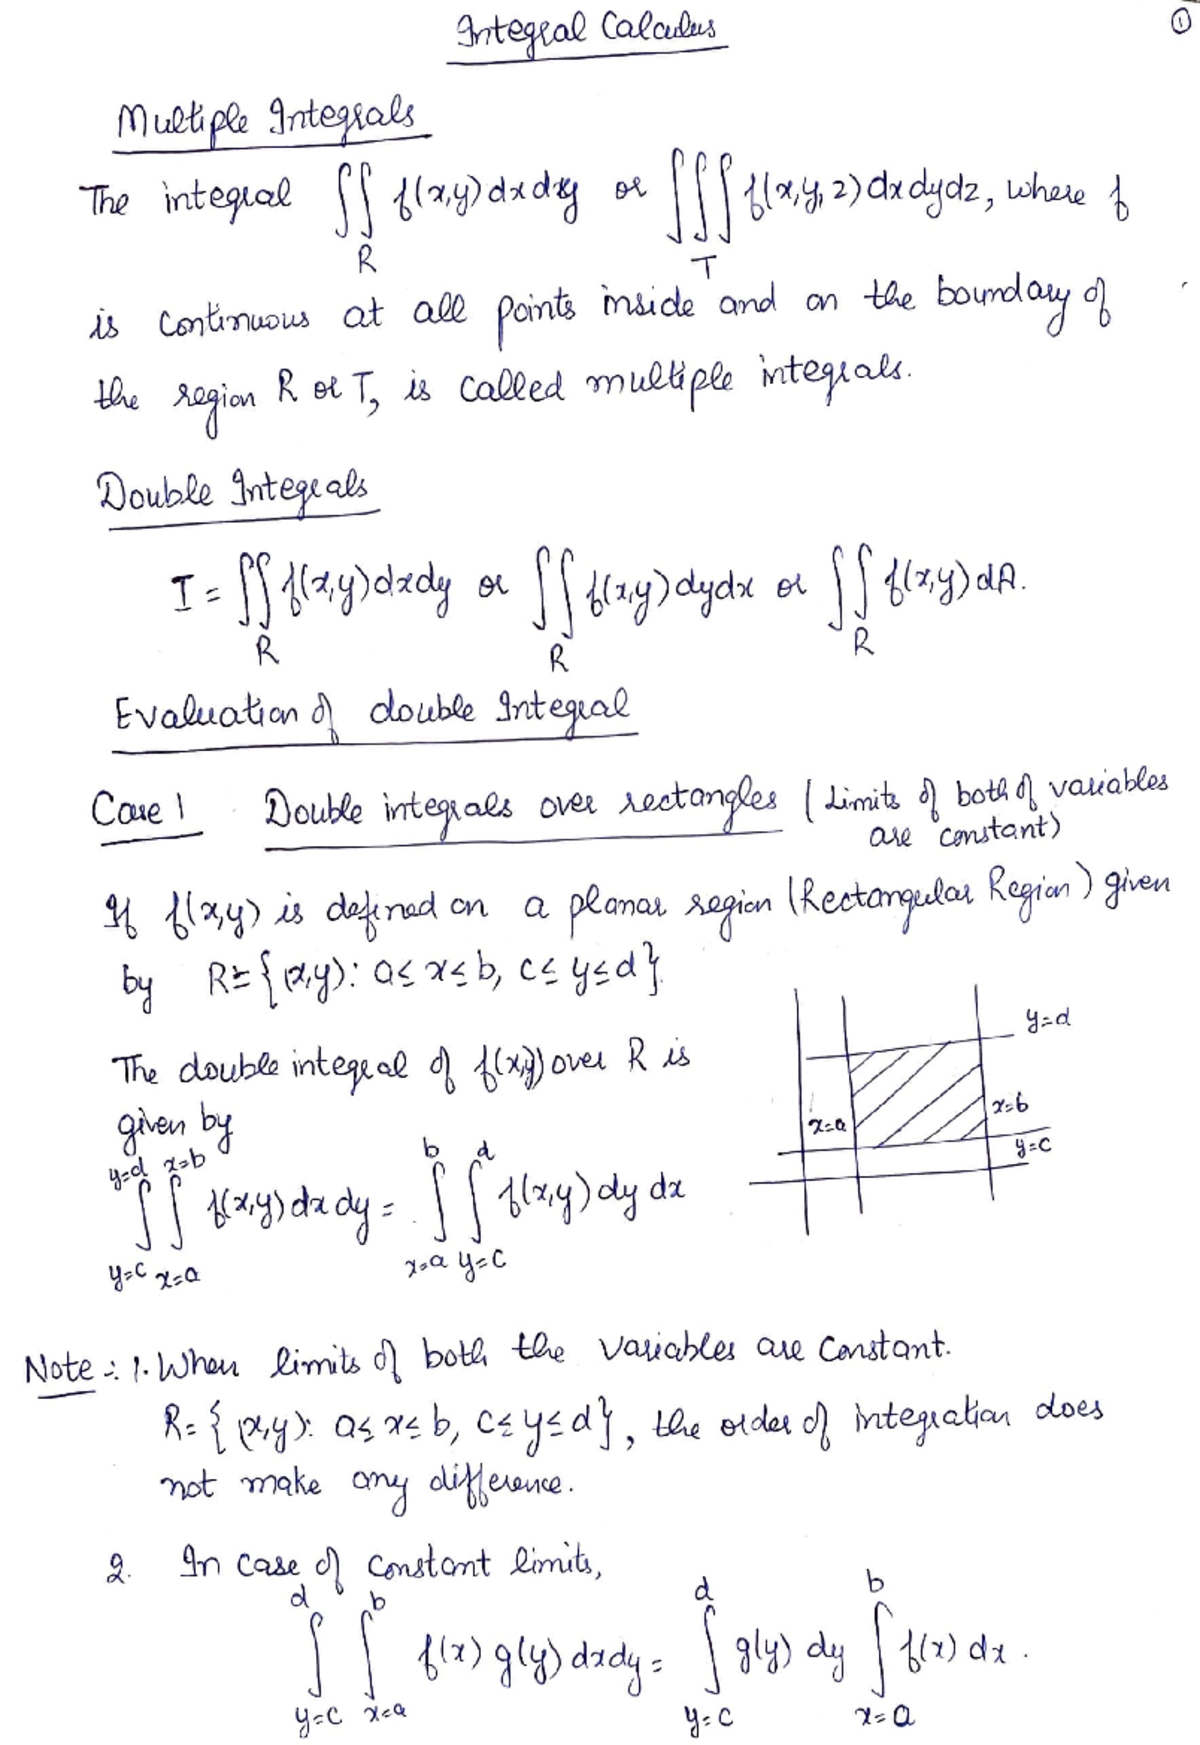 Integral Calculus
①
Multiple Integrals
The integral ∬_R f(x,y) dx dy or ∭_T f(x,y,z) dx dy dz, where f
is continuous at all points inside and on the boundary of
the region R or T, is called multiple integrals.
Double Integrals
I = ∬_R f(x,y) dx dy or ∬_R f(x,y) dy dx or ∬_R f(x,y) dA.
Evaluation of double Integral
Case 1 Double integrals over rectangles (Limits of both of variables
are constant)
If f(x,y) is defined on a planar region (Rectangular Region) given
by R = {(x,y): a ≤ x ≤ b, c ≤ y ≤ d}.
The double integral of f(x,y) over R is
given by
∫_{y=c}^{y=d} ∫_{x=a}^{x=b} f(x,y) dx dy = ∫_{x=a}^{b} ∫_{y=c}^{d} f(x,y) dy dx
y=d
x=b
x=a
y=c
Note :- 1. When limits of both the variables are constant.
R = {(x,y): a ≤ x ≤ b, c ≤ y ≤ d}, the order of integration does
not make any difference.
2. In case of constant limits,
∫_{y=c}^{d} ∫_{x=a}^{b} f(x) g(y) dx dy = ∫_{y=c}^{d} g(y) dy ∫_{x=a}^{b} f(x) dx.